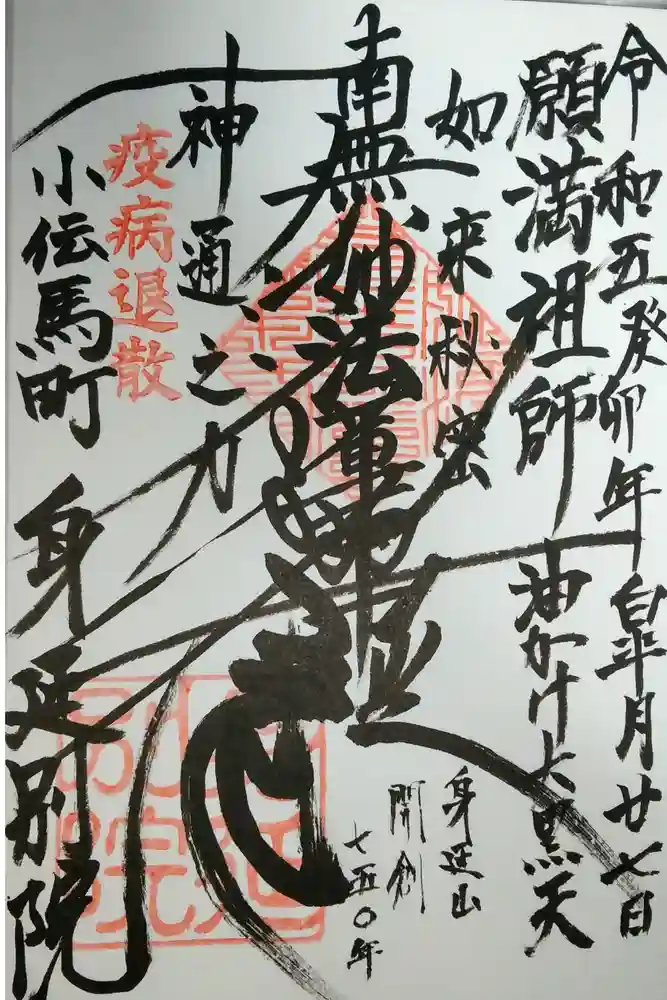 令和五癸卯年皐月廿七日
願満祖師
油かけ大黒天
如来秘密
南無妙法蓮華経
身延山
開創
七五〇年
神通之力
疫病退散
小伝馬町
身延別院